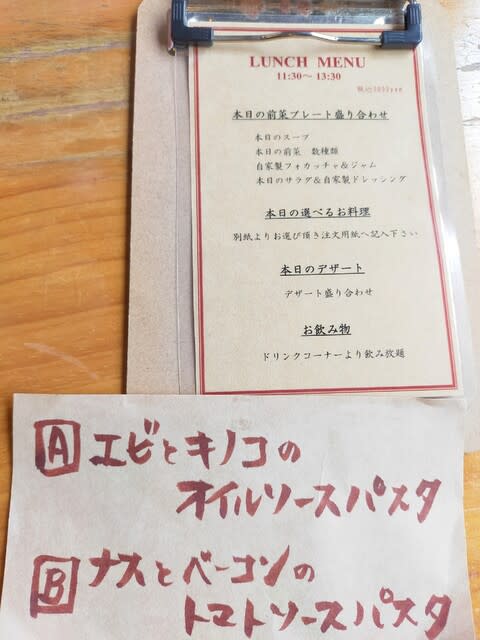 LUNCH MENU
11:30～ 13:30
本日の前菜プレート盛り合わせ
本日のスープ
本日の前菜 数種類
自家製フォカッチャ＆ジャム
本日のサラダ＆自家製ドレッシング
本日の選べるお料理
別紙よりお選び頂き注文用紙へ記入下さい
本日のデザート
デザート盛り合わせ
お飲み物
ドリンクコーナーより飲み放題
A エビとキノコの
オイルソースパスタ
B ナスとベーコンの
トマトソースパスタ